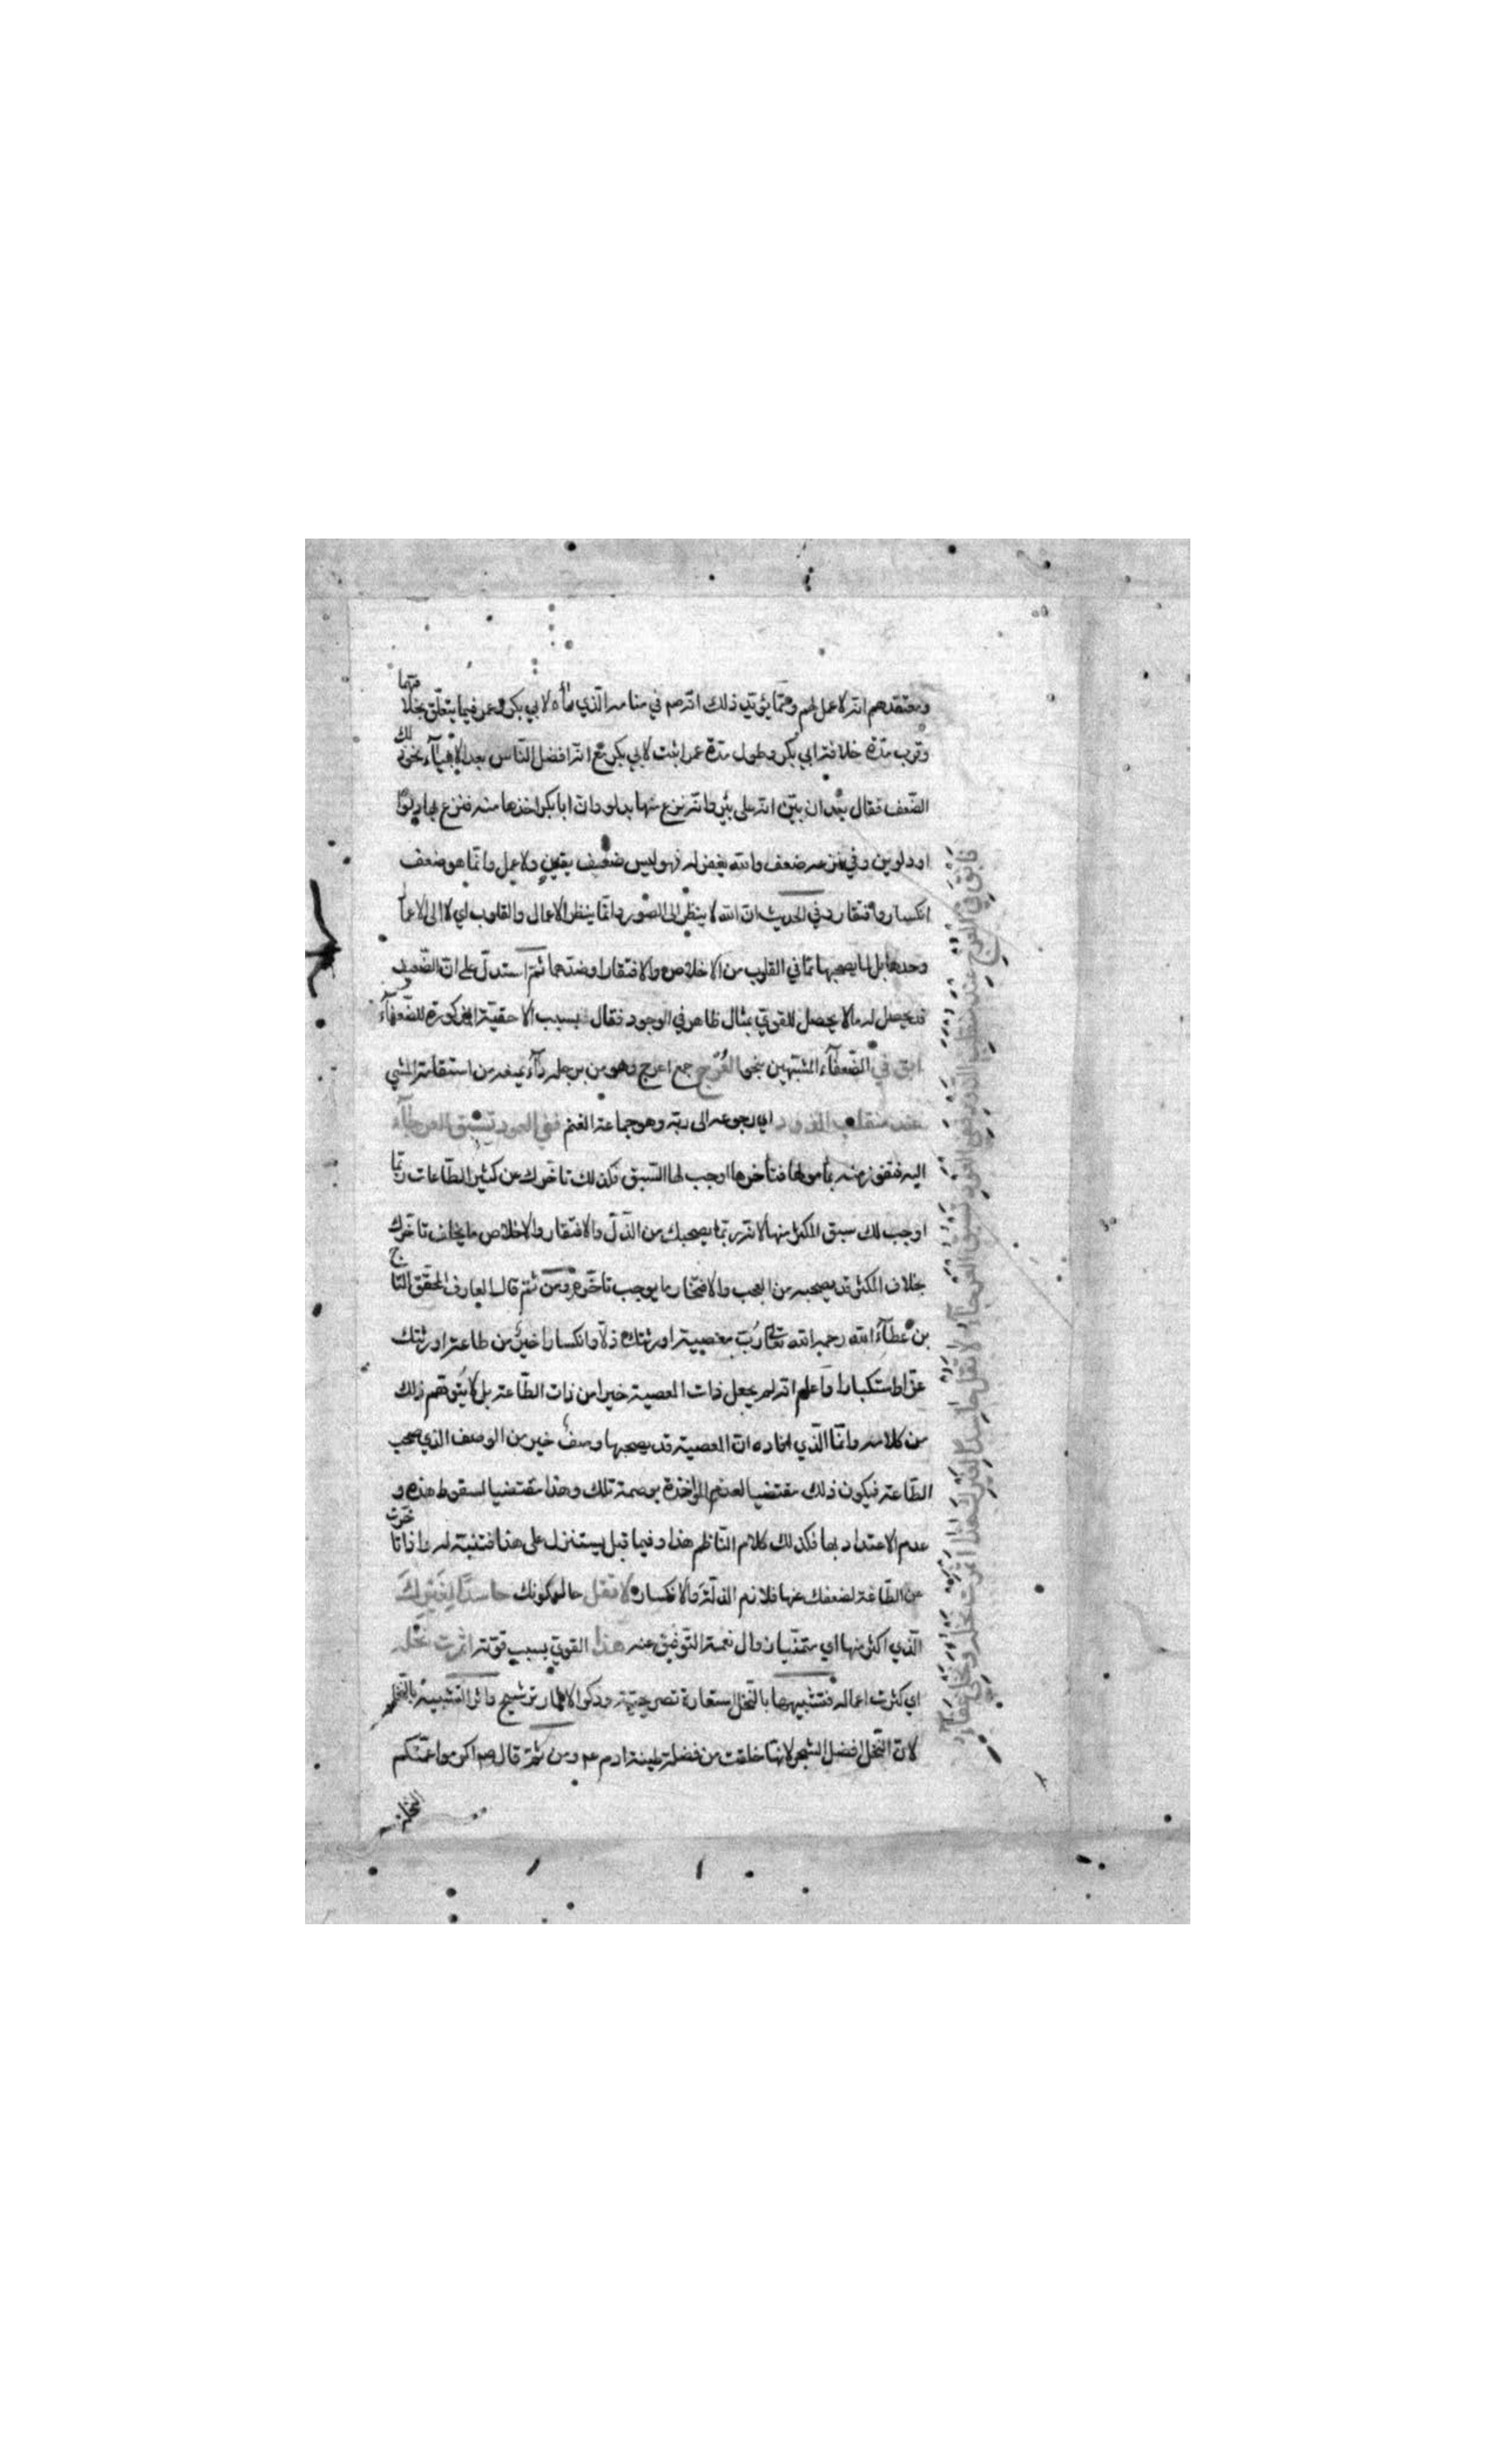 ومعتقدهم انه لاعمل لهم ومما يؤيد ذلك انه صم في منامه الذي رأه لابي بكر وعمر فيما يتعلق بخلافتهما
وقرب مدة خلافة ابي بكر وطول مدة عمر اثبت لابي بكر مع انه افضل الناس بعد الانبيآء نحو ذلك
الضعف فقال بعد ان بين انه على بئر وانه نزع منها بدلو وان ابا بكر اخذها منه فنزع بها دلوا
او دلوين وفي نزعه ضعف والله يغفر له فهو ليس ضعيف يقين ولا عمل وانما هو ضعف
انكسار وافتقار وفي الحديث ان الله لا ينظر الى الصور وانما ينظر الاعمال والقلوب اي لا الى الاعمال
وحدها بل لما يصحبها مما في القلوب من الاخلاص والافتقار او ضدهما ثم استدل على ان الضعيف
قد يحصل له ما لا يحصل للقوي بمثال ظاهر في الوجود فقال بسبب الاحقية المذكورة للضعفآء
ابق في الضعفآء المشبهين بنحو العرج جمع اعرج وهو من برجله دآء يمنعه من استقامة المشي
عند منقلب الذود اي رجوعه الى ربه وهو جماعة الغنم ففي العود تسبق العرجآء
اليه فتفوز منه بمأمولها فتأخرها اوجب لها السبق فكذلك تاخرك عن كثير الطاعات ربما
اوجب لك سبق المكثر منها لانه ربما يصحبك من الذل والافتقار والاخلاص ما يخلف تاخرك
بخلاف المكثر قد يصحبه من العجب والافتخار ما يوجب تاخره ومن ثم قال العارف المحقق التاج
بن عطآء الله رحمه الله تعالى رب معصية اورثتك ذلا وانكسارا خير من طاعة اورثتك
عزا واستكبارا واعلم انه لم يجعل ذات المعصية خيرا من ذات الطاعة بل لا يتوهم ذلك
من كلامه وانما الذي افاده ان المعصية قد يصحبها وصف خير من الوصف الذي صحب
الطاعة فيكون ذلك مقتضيا لعدم المؤاخذة بوصمة تلك وهذا مقتضيا لسقوط هذه و
عدم الاعتداد بها فكذلك كلام الناظم هذا وفيما قبل يستنزل على هذا فتنبه له واذا تاخرت
عن الطاعة لضعفك عنها فلازم الذلة والانكسار و لا تقل حالكونك حاسدا لغيرك
الذي اكثر منها اي متمنيا زوال نعمة التوفيق عنه هذا القوي بسبب قوته اثمرت نخله
اي كثرت اعماله فتشبيهها بالنخل استعارة تصريحية وذكر الاثمار ترشيح واثر التشبيه بالنخل
لان النخل افضل الشجر لانها خلقت من فضلة طينة ادم عم ومن ثم قال صم اكرموا عمتكم
النخلة
فابق في العرج عند منقلب الذود ففي العود تسبق العرجآء لا تقل حاسدا لغيرك هذا اثمرت نخله ونخلي عفآء